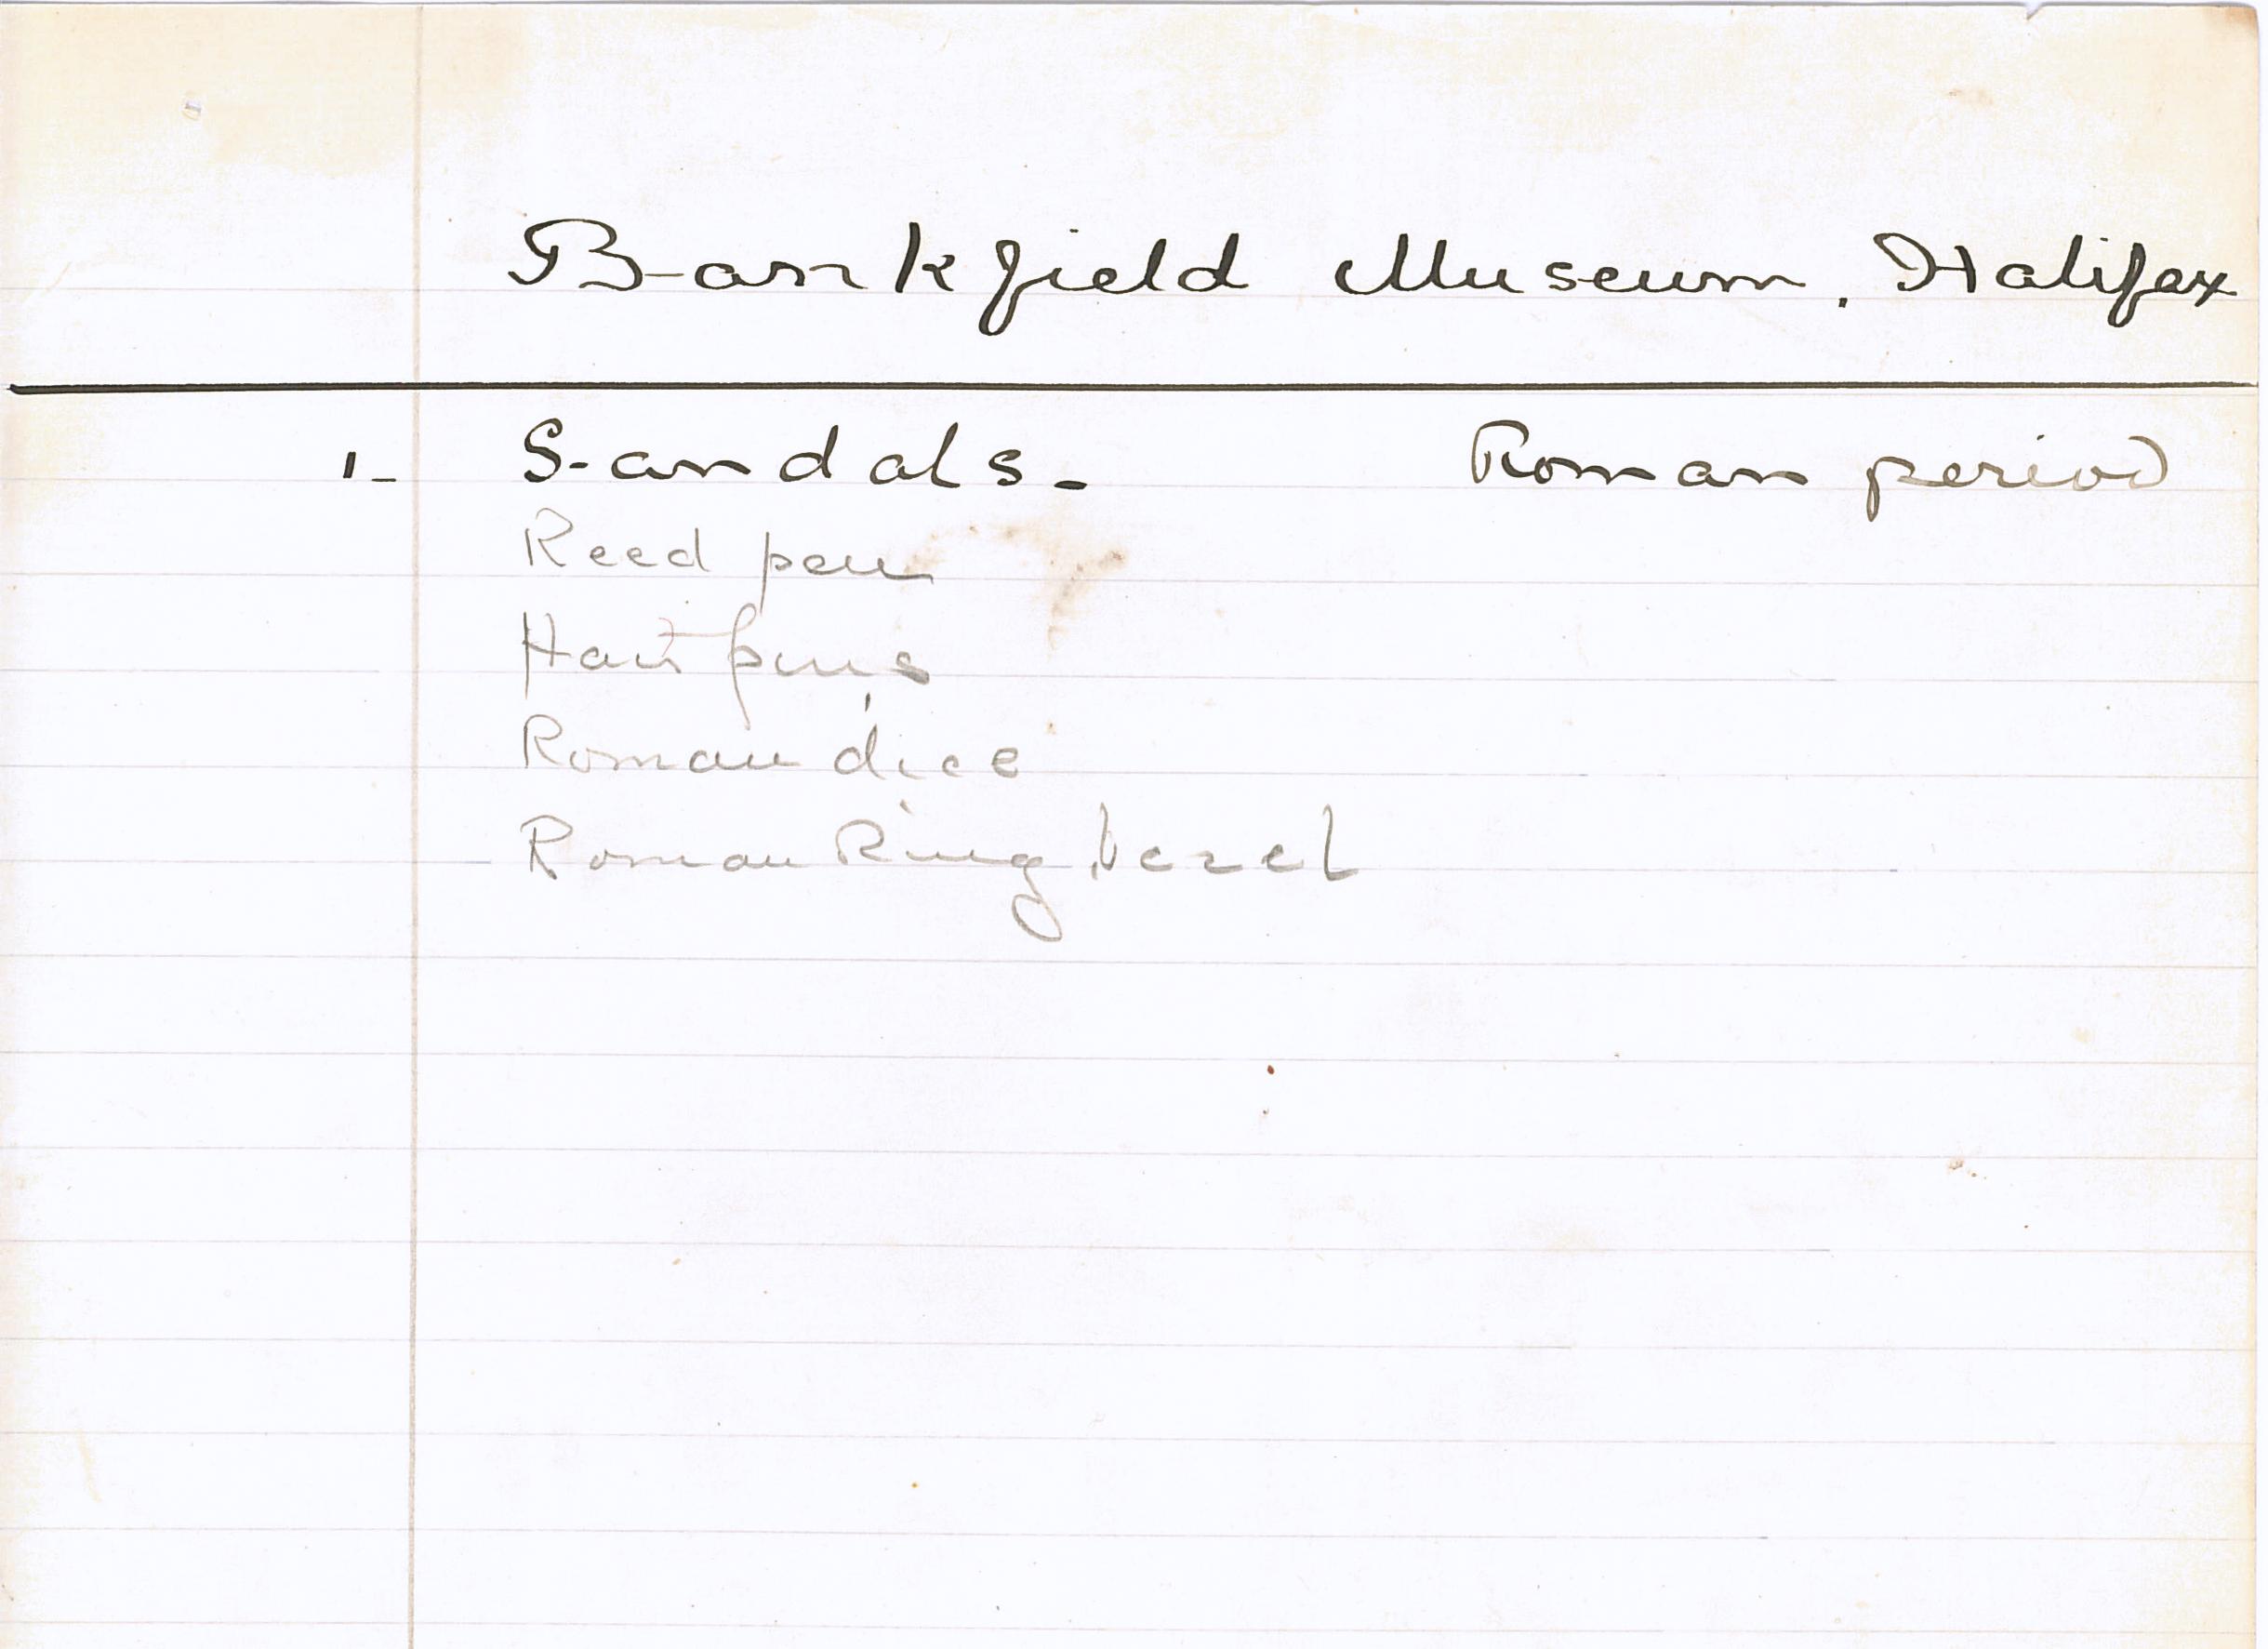 Bankfield Museum. Halifax
1- Sandals- Roman period
Reed pen
Hair pins
Roman dice
Roman Ring bezel